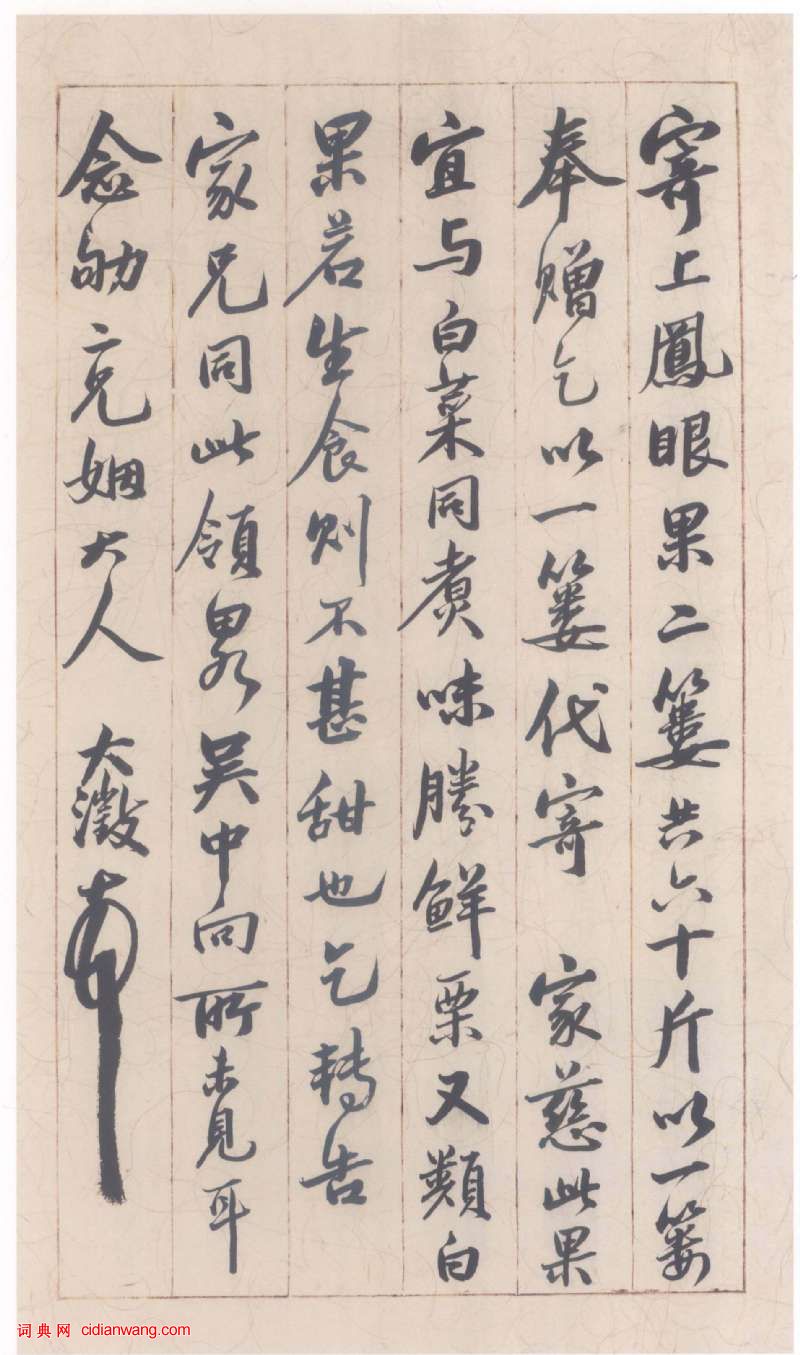 寄上鳳眼果二簍共六十斤以一簍
奉贈乞以一簍代寄 家慈此果
宜与白菜同煑味勝鮮栗又類白
果若生食則不甚甜也乞轉告
家兄同此領畧吳中向所未見耳
念劬二兄姻大人 大澂
词典网 cidianwang.com